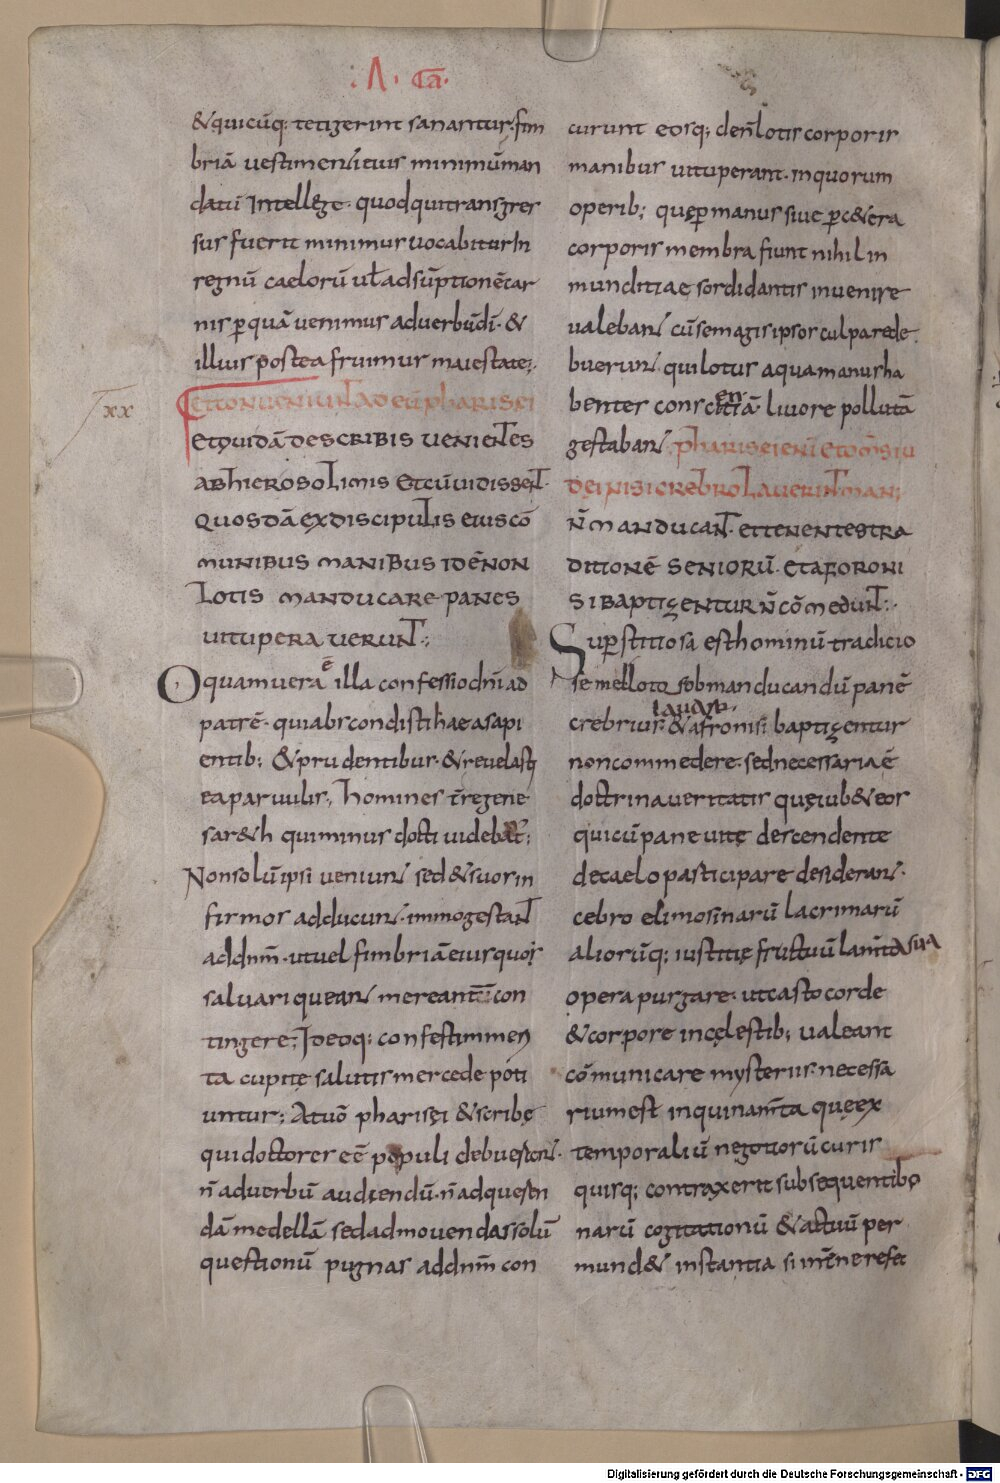 : Λ · CA̅ ·
& quicu̅q; tetigerint sanantur. fim
bria̅ vestimenti eius minimu̅ man
datu̅ Intellege. quod qui transgres
sus fuerit minimus vocabitur In
regnu̅ caeloru̅ ul̵ adsu̅ptione̅ car
nis p̲ qua̅ venimus ad verbu̅ di̅. &
illius postea fruimur maiestate;.
ET CONVENIUNT AD EU̅ PHARISEI
ET QUIDA̅ DE SCRIBIS VENIENTES
AB HIEROSOLIMIS ET CU̅ VIDISSENT
QUOSDA̅ EX DISCIPULIS EIUS CO̅
MUNIBUS MANIBUS ID E̅ NON
LOTIS MANDUCARE PANES
VITUPERAVERUNT;.
xx
O quam vera e̅ illa confessio dn̅i ad
patre̅. qui abscondisti haec a sapi
entib; & prudentibus. & revelasti
ea parvulis; Homines tr̅e gene
sar&h qui minus docti videbant;
Non solu̅ ipsi veniunt sed & suos in
firmos adducunt. immo gestant
ad dnm̅. ut vel fimbria̅ eius quos
salvari queant mereant̅ con
tingere; Ideoq; confestim men
ta cupite̜ salutis mercede poti
untur; At vō pharise̜i & scribe̜
qui doctores e̅e̅ populi debuerunt.
n̅ ad verbu̅ audiendu̅. n̅ ad quere̅n
da̅ medella̅ sed ad movendas solu̅
questionu̅ pugnas ad dnm̅ con
currunt eosq; de n̅ lotis corporis
manibus vituperant. in quorum
operib; que̜ p̲ manus sive p̲ c&era
corporis membra fiunt nihil in
munditiae sordidantis invenire
valebant cu̅ se magis ipsos culpare de
buerunt. qui lotus aqua manus ha
bentes conscientia̅ livore polluta̅
gestabant. PHARISEI ENI̅ ET OM̅S IU
DEI NISI CREBRO LAVERINT MAN;
N̅ MANDUCANT. ET TENENTES TRA
DITIONE̅ SENIORU̅. ET A FORO NI
SI BAPTIZENTUR N̅ CO̅MEDUNT;.
Superstitiosa est hominu̅ tradicio
semel loto sob manducandu̅ pane̅
lavari.
crebrius. & a foro nisi baptizentur
non commedere. sed necessaria e̅
doctrina veritatis que̜ iub& eos
qui cu̅ pane vite̜ descendente
de caelo pasticipare desiderant.
cebro elimosinaru̅ lacrimaru̅
alioru̅q; iustitie̜ fructuu̅ lam̅ta sua
opera purgare. ut casto corde
& corpore in ce̜lestib; valeant
co̅municare mysteriis. necessa
rium est inquinam̅ta que̜ ex
temporaliu̅ negotioru̅ curis
quisq; contraxerit subsequentib;
naru̅ cogitationu̅ & actuu̅ per
mund& instantia si int̅ne refec
Digitalisierung gefördert durch die Deutsche Forschungsgemeinschaft - DFG